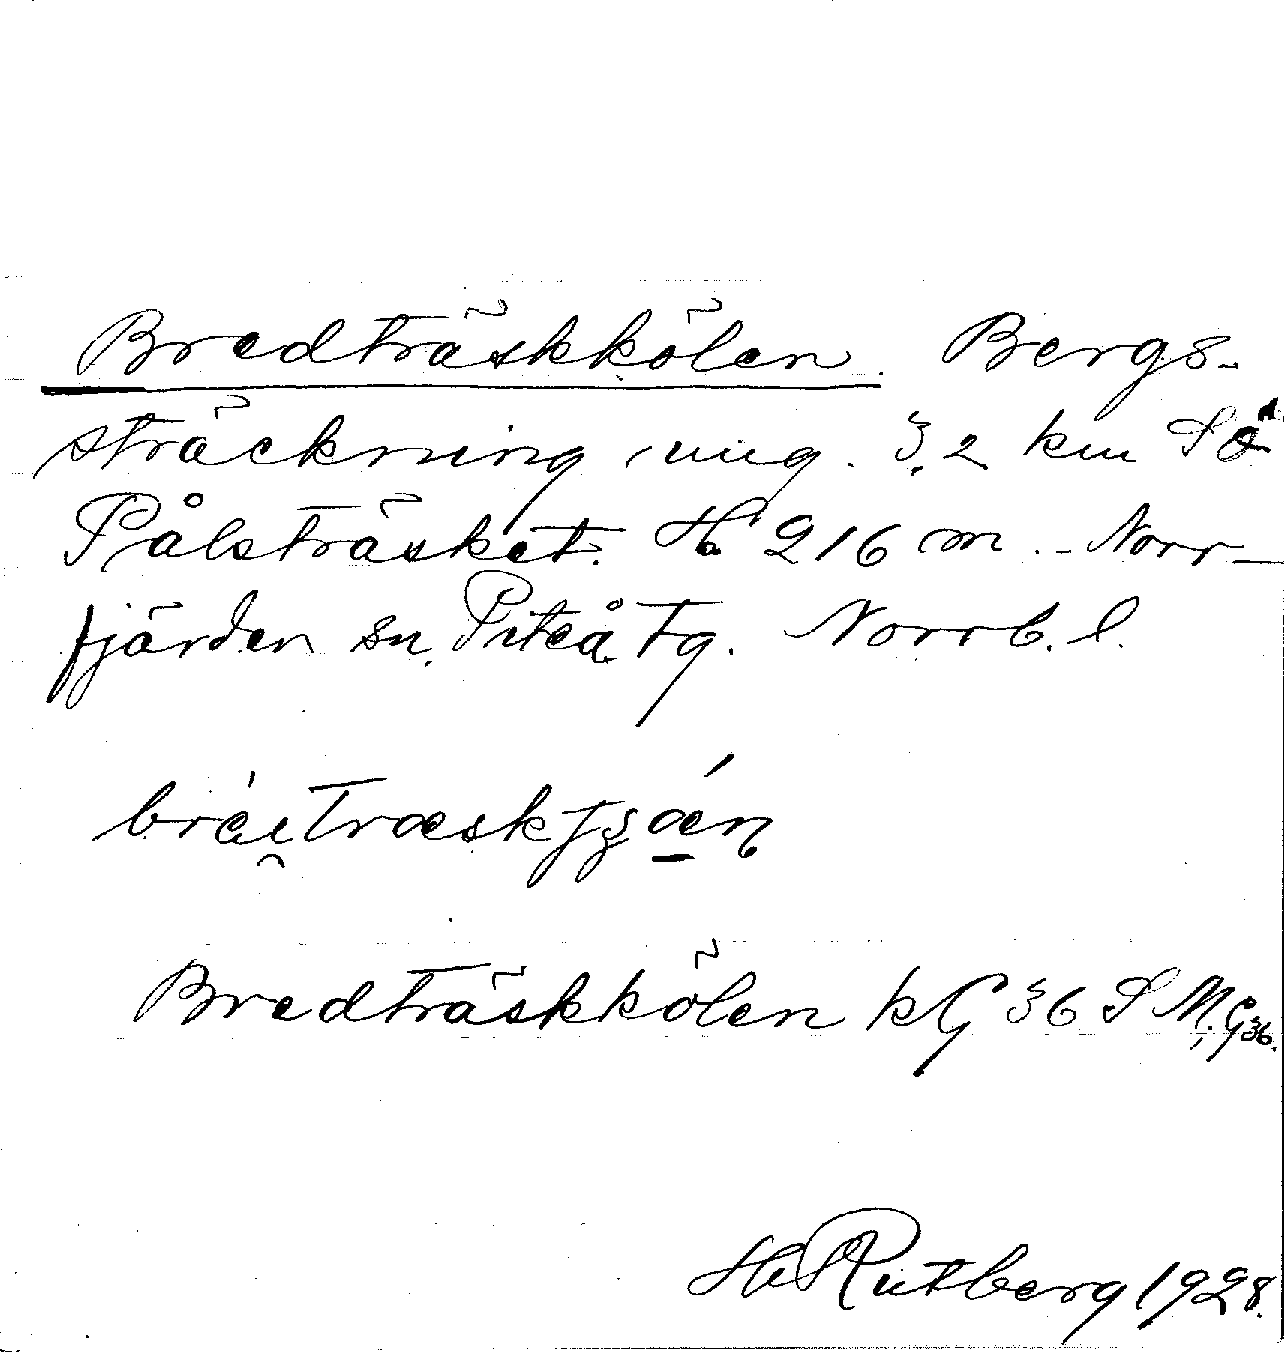 Bredträskkölen. Bergs-
sträckning, ung. 3,2 km SÖ
Pålsträsket. H 216 m. - Norr-
fjärden sn. Piteå Tg. Norrb. l.
Bredträskkölen k G 36 S M. G 36.
H Rutberg 1928.